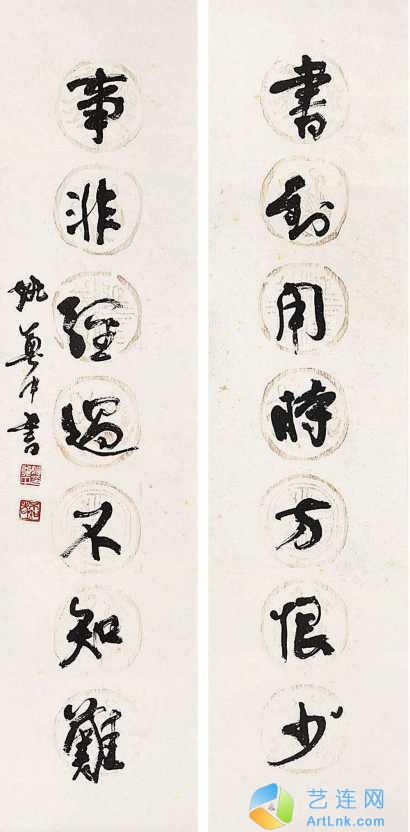 書到用時方恨少
事非經過不知難
姚奠中書
艺连网
ArtLink.com